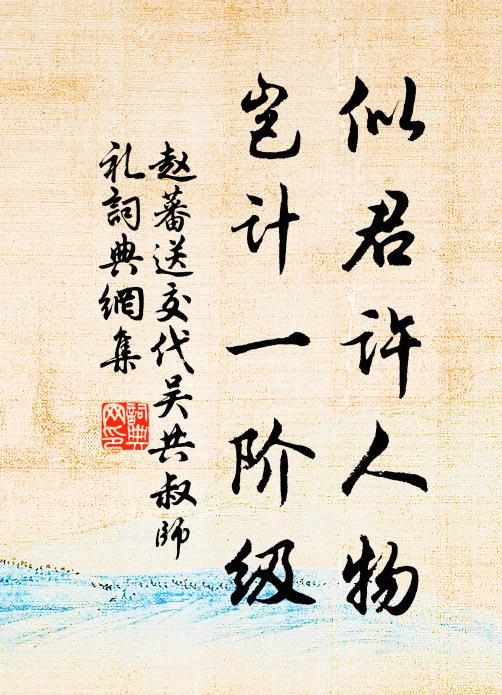 似君许人物
岂计一阶级
赵蕃送交代吴共叔师
礼詞典網集
詞典
网印